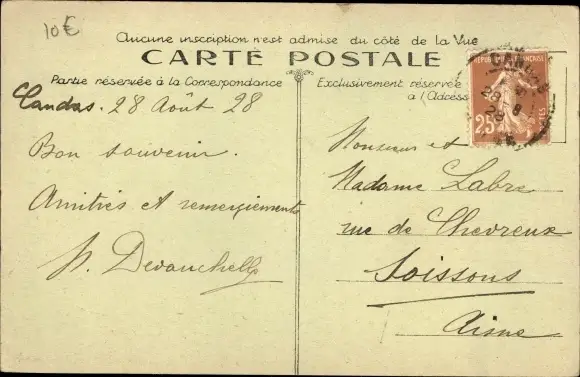 10€
Aucune inscription n'est admise du côté de la Vue
CARTE POSTALE
Partie réservée à la Correspondance
Exclusivement réservée
à l'Adresse
Candas. 28 Août 28
Bon souvenir.
Amitiés et remerciements
Monsieur et
Madame Labre
rue de Chevreux
Soissons
Aisne
REPUBLIQUE FRANÇAISE
25
28
28